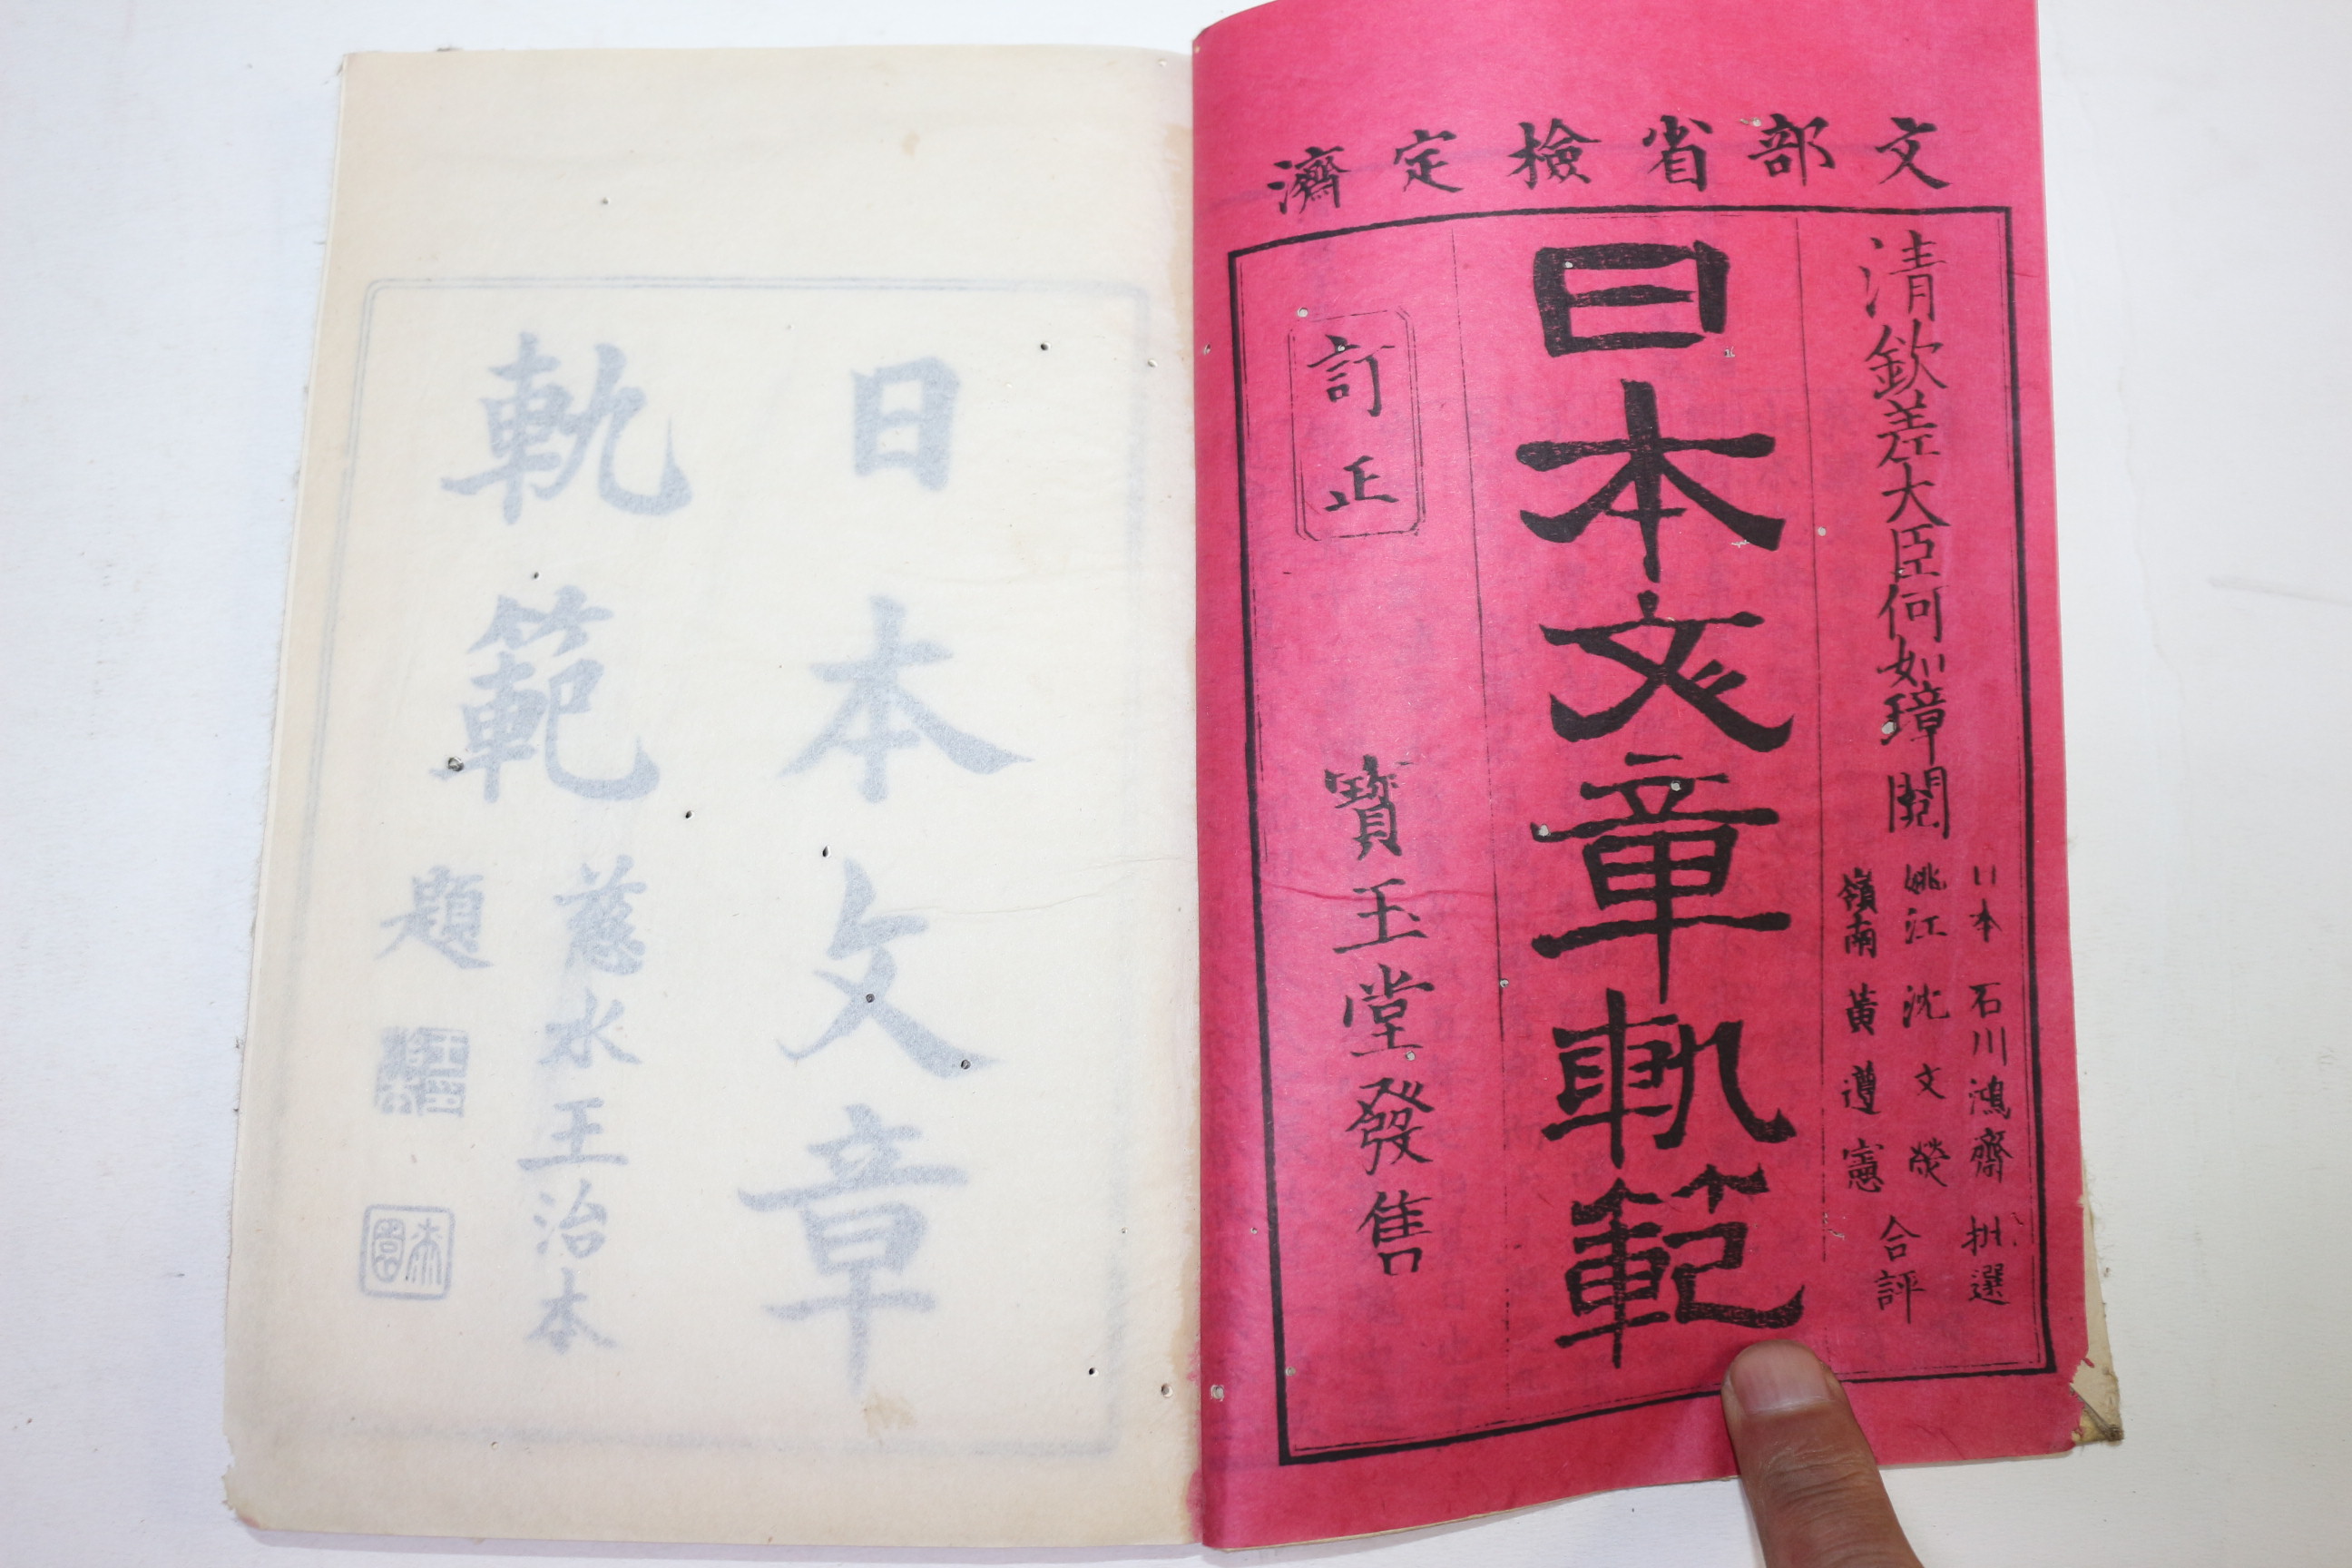 文部省檢定濟
清欽差大臣何如璋閱
日本 石川鴻齋 批選
姚江 沈文熒
嶺南 黃遵憲
合評
日本文章軌範
訂正
寶玉堂發售
日本文章
軌範
慈水王治本
題